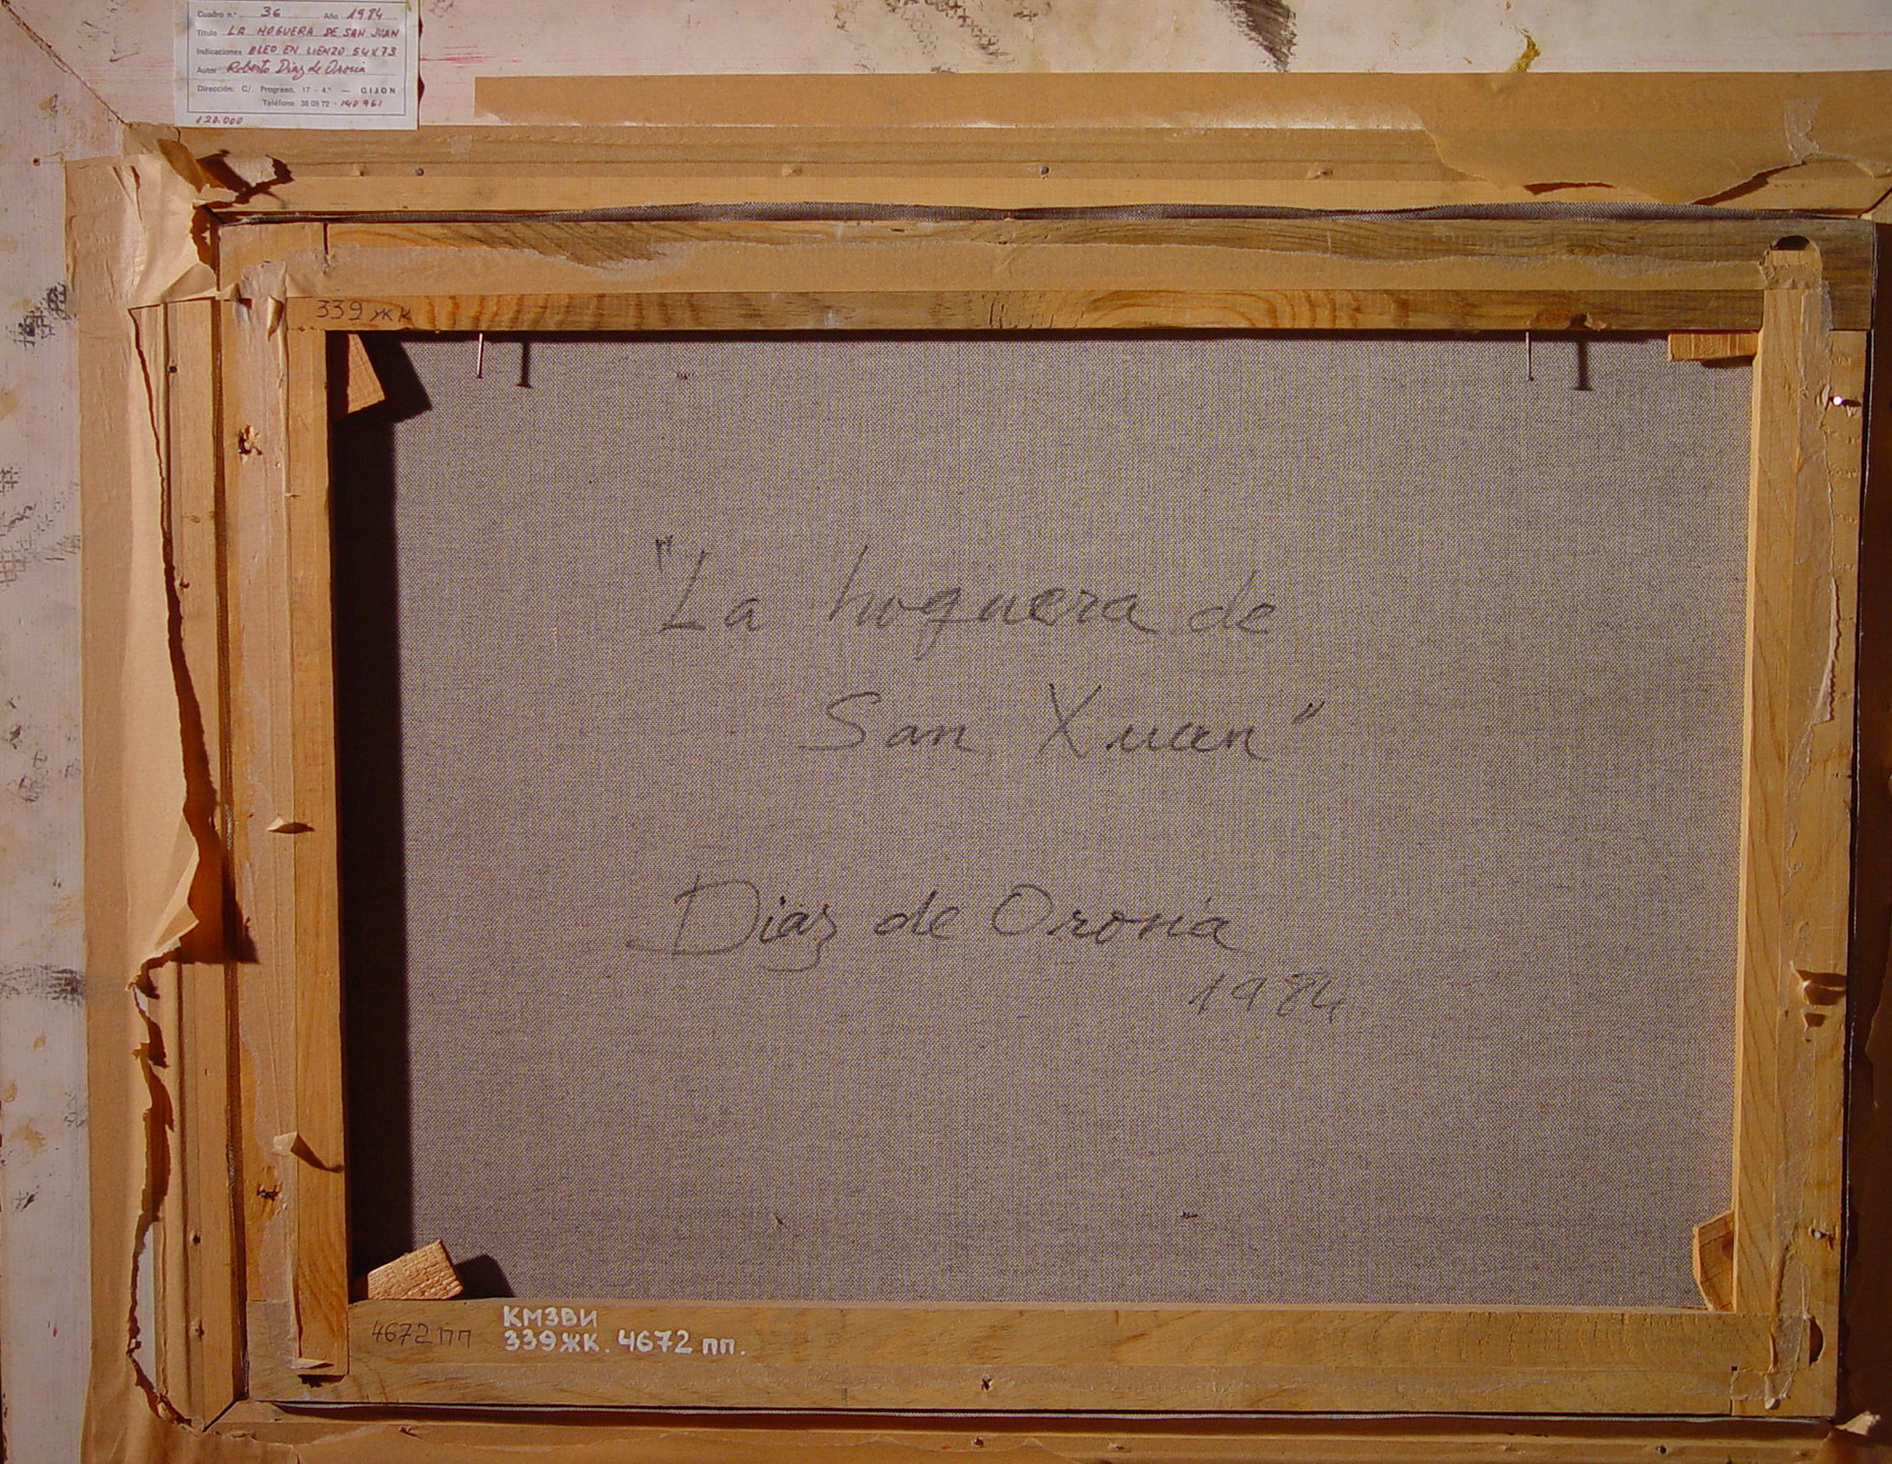 Cuadro n.º 36 Año 1984
Título LA HOGUERA DE SAN JUAN
Indicaciones OLEO EN LIENZO 54X73
Autor Roberto Diaz de Orosia
Dirección: C/. Progreso, 17 - 4.º — GIJON
Teléfono 38 09 72 - 140961
120.000
339 жк
"La hoguera de
San Xuan"
Diaz de Orosia
1984
4672 пп
КМЗВИ
339ЖК. 4672 пп.